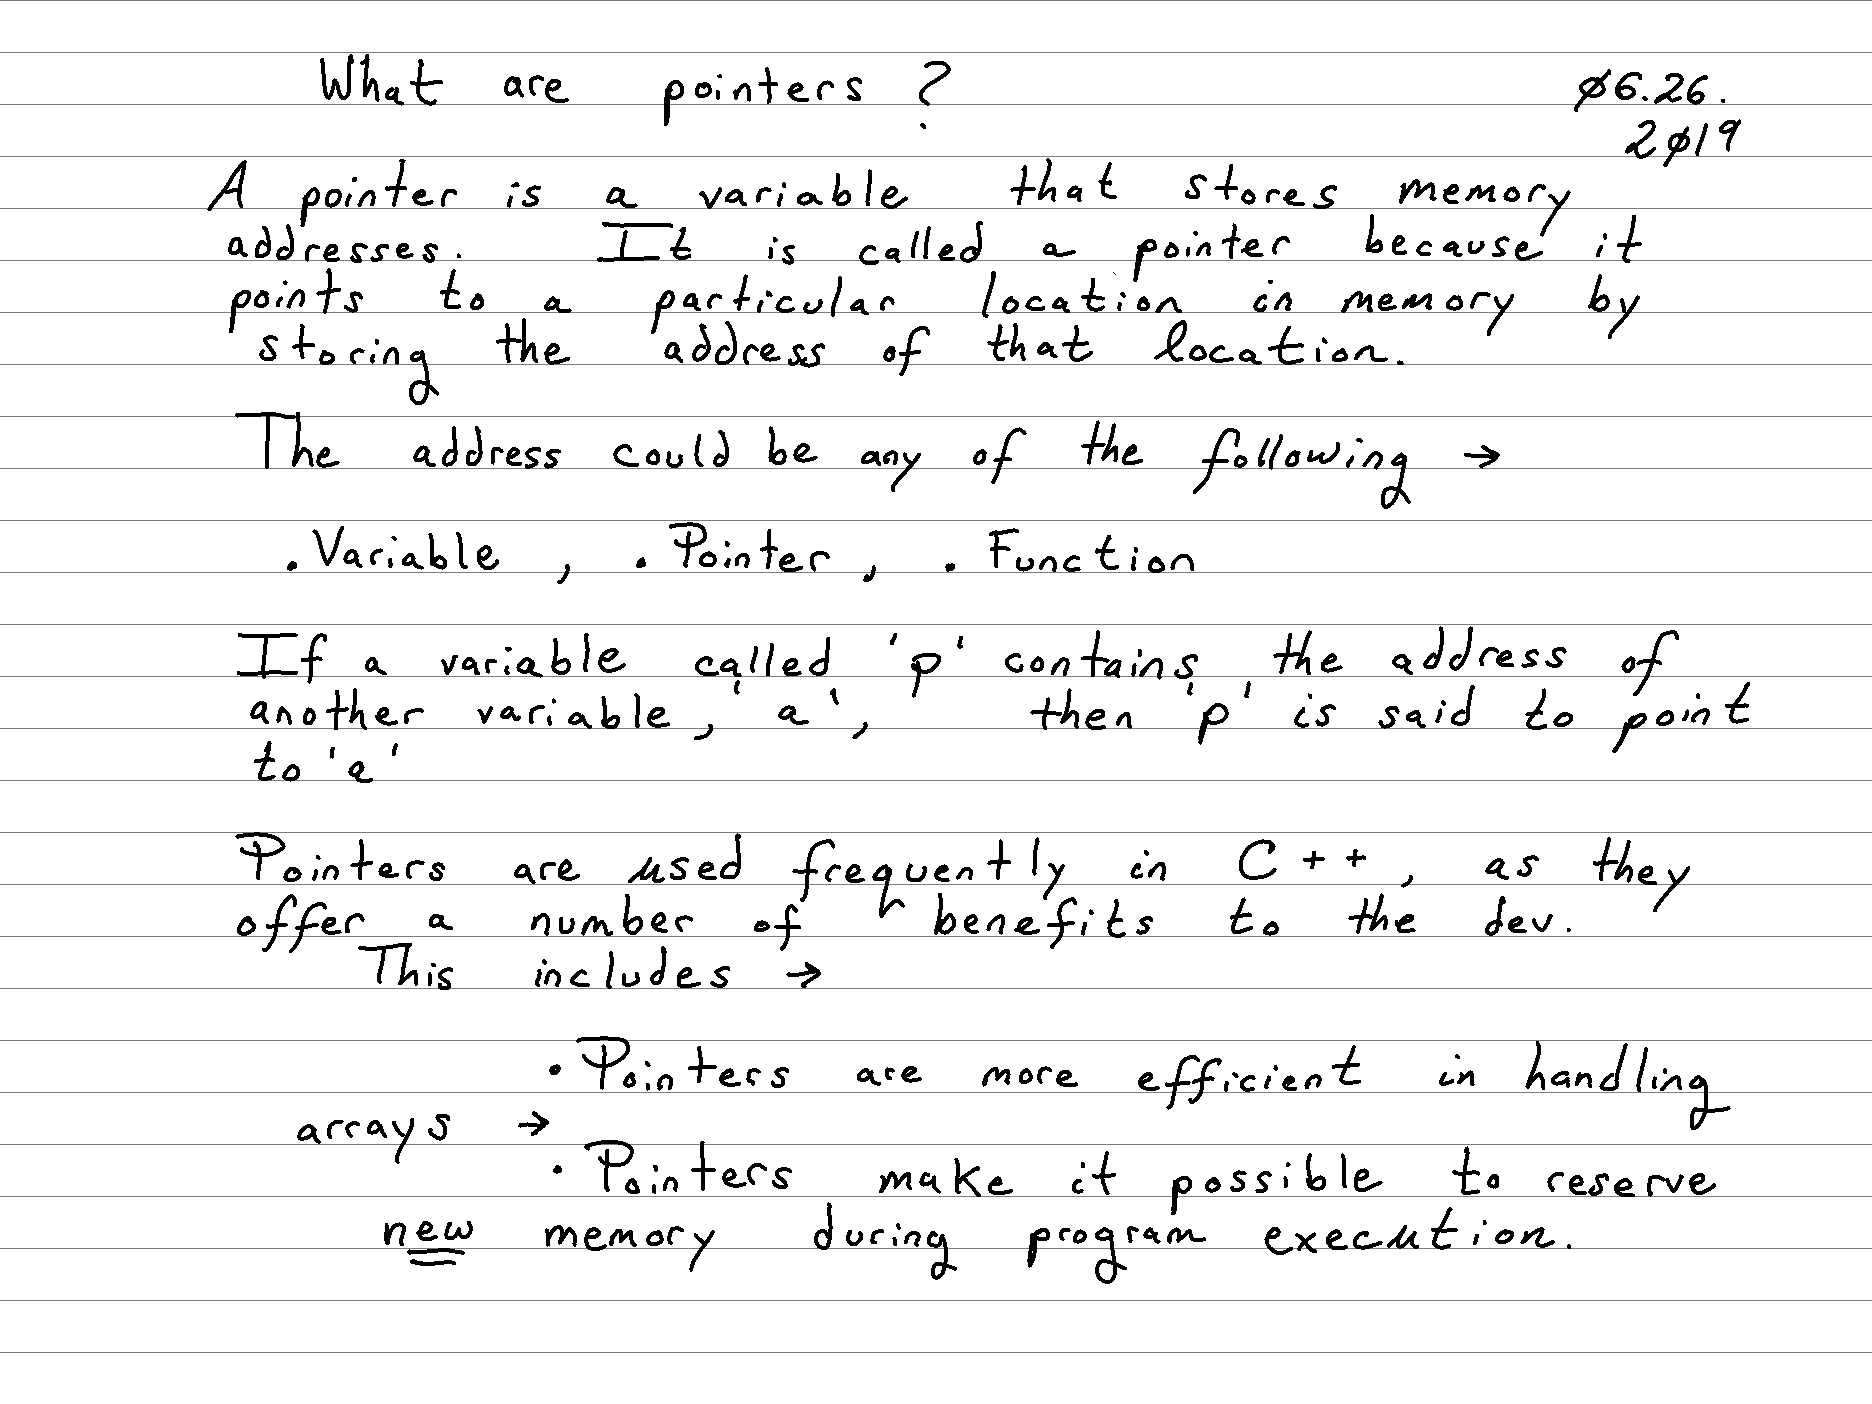 What are pointers ?
ø6.26.
2ø19
A pointer is a variable that stores memory
addresses. It is called a pointer because it
points to a particular location in memory by
storing the address of that location.
The address could be any of the following →
. Variable , . Pointer , . Function
If a variable called 'p' contains the address of
another variable, 'a', then 'p' is said to point
to 'a'
Pointers are used frequently in C++, as they
offer a number of benefits to the dev.
This includes →
• Pointers are more efficient in handling
arrays →
• Pointers make it possible to reserve
new memory during program execution.